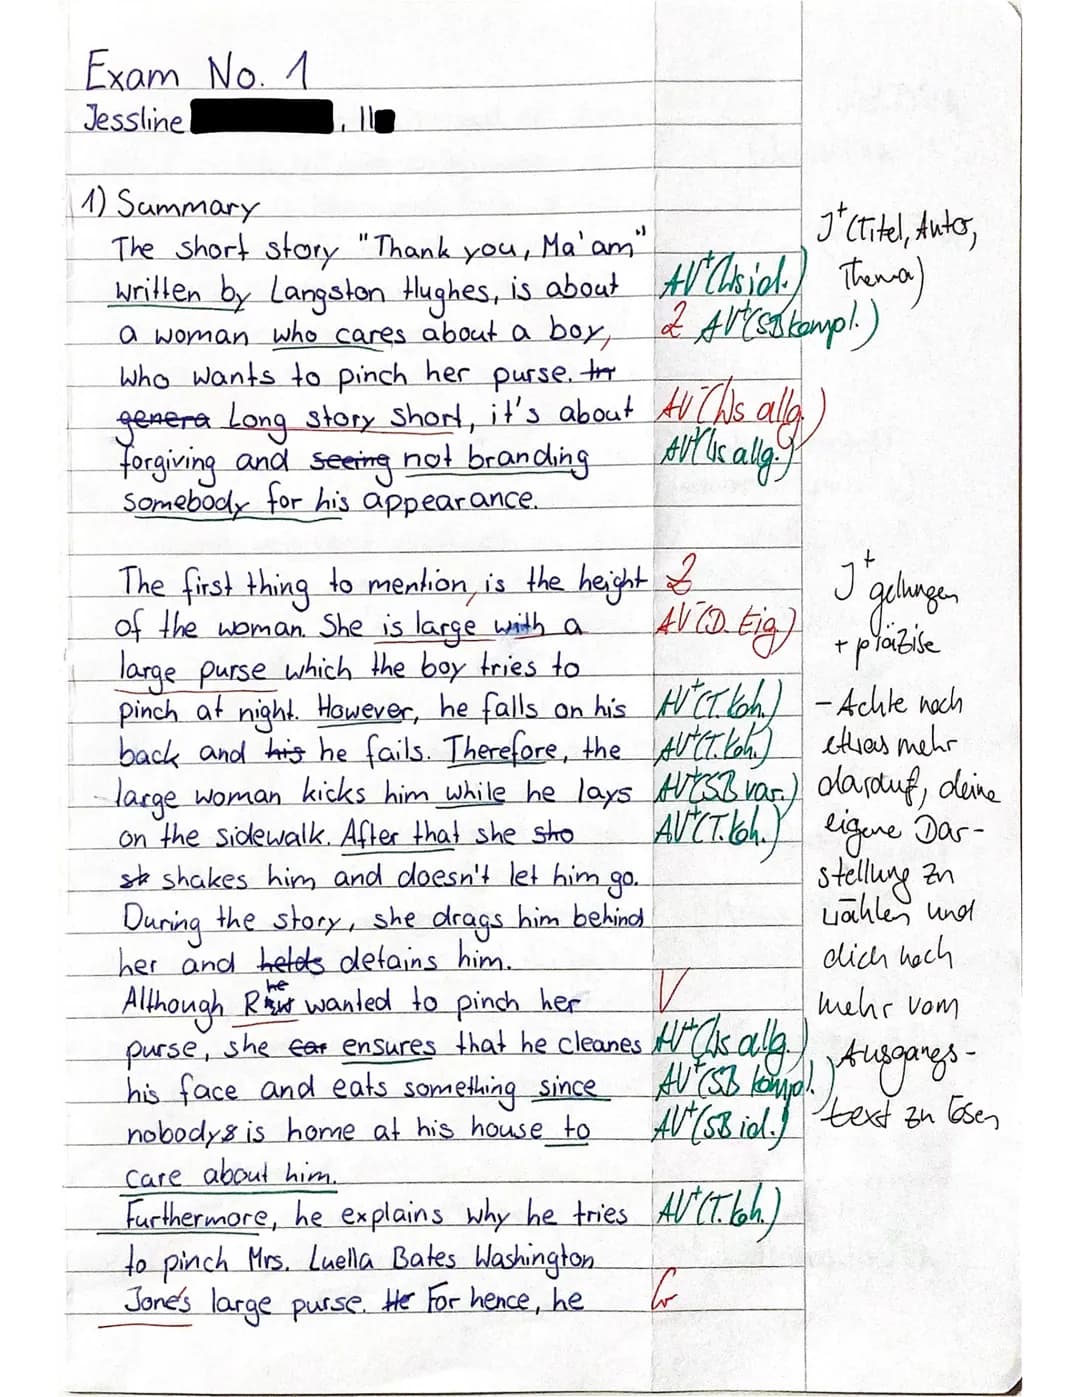 Exam No. 1
Jessline , 11
1) Summary
The short story "Thank you, Ma'am"
written by Langston Hughes, is about
a woman who cares about a boy,
who wants to pinch her purse. In
genera Long story short, it's about
forgiving and seeing not branding
somebody for his appearance.
The first thing to mention, is the height
of the woman. She is large with a
large purse which the boy tries to
pinch at night. However, he falls on his
back and his he fails. Therefore, the
large woman kicks him while he lays
on the sidewalk. After that she sho
sk shakes him and doesn't let him go.
During the story, she drags him behind
her and helds detains him.
Although he wanted to pinch her
purse, she car ensures that he cleanes
his face and eats something since
nobodys is home at his house to
care about him.
Furthermore, he explains why he tries
to pinch Mrs. Luella Bates Washington
Jone's large purse. He For hence, he
AV+(Ws id.)
Z AV+(SB kompl.)
AV-(Ws allg.)
AV+(Ws allg.)
Z
AV-(D. Eig)
AV+(T.koh.)
AV+(T.koh.)
AV+(SB var.)
AV+(T.koh.)
V
AV+(Ws allg.)
AV+(SB kompl.)
AV+(SB id.)
AV+(T.koh.)
Gr
J+ (Titel, Autor,
Thema)
J+ gelungen
+ präzise
- Achte noch
etwas mehr
darauf, deine
eigene Dar-
stellung zu
wählen und
dich noch
mehr vom
Ausgangs-
text zu lösen